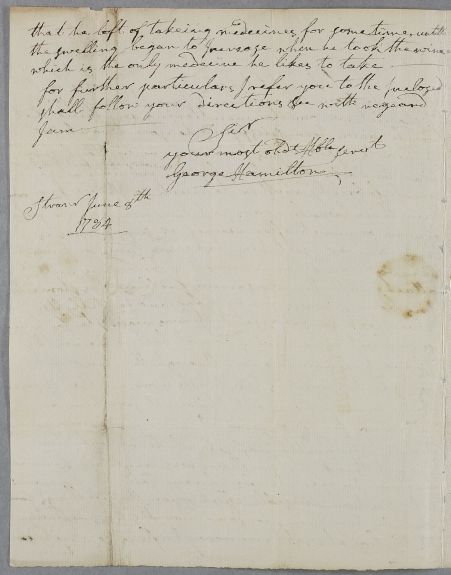 that he left of takeing medecines for some time, untill
the swelling began to Increase when he took the wine
which is the only medecine he likes to take
for further particulars I refer you to the Inclosed
shall follow your directions & with regard
I am
Sir
your most obdt Hble Servt
George Hamilton
June 8th
1784